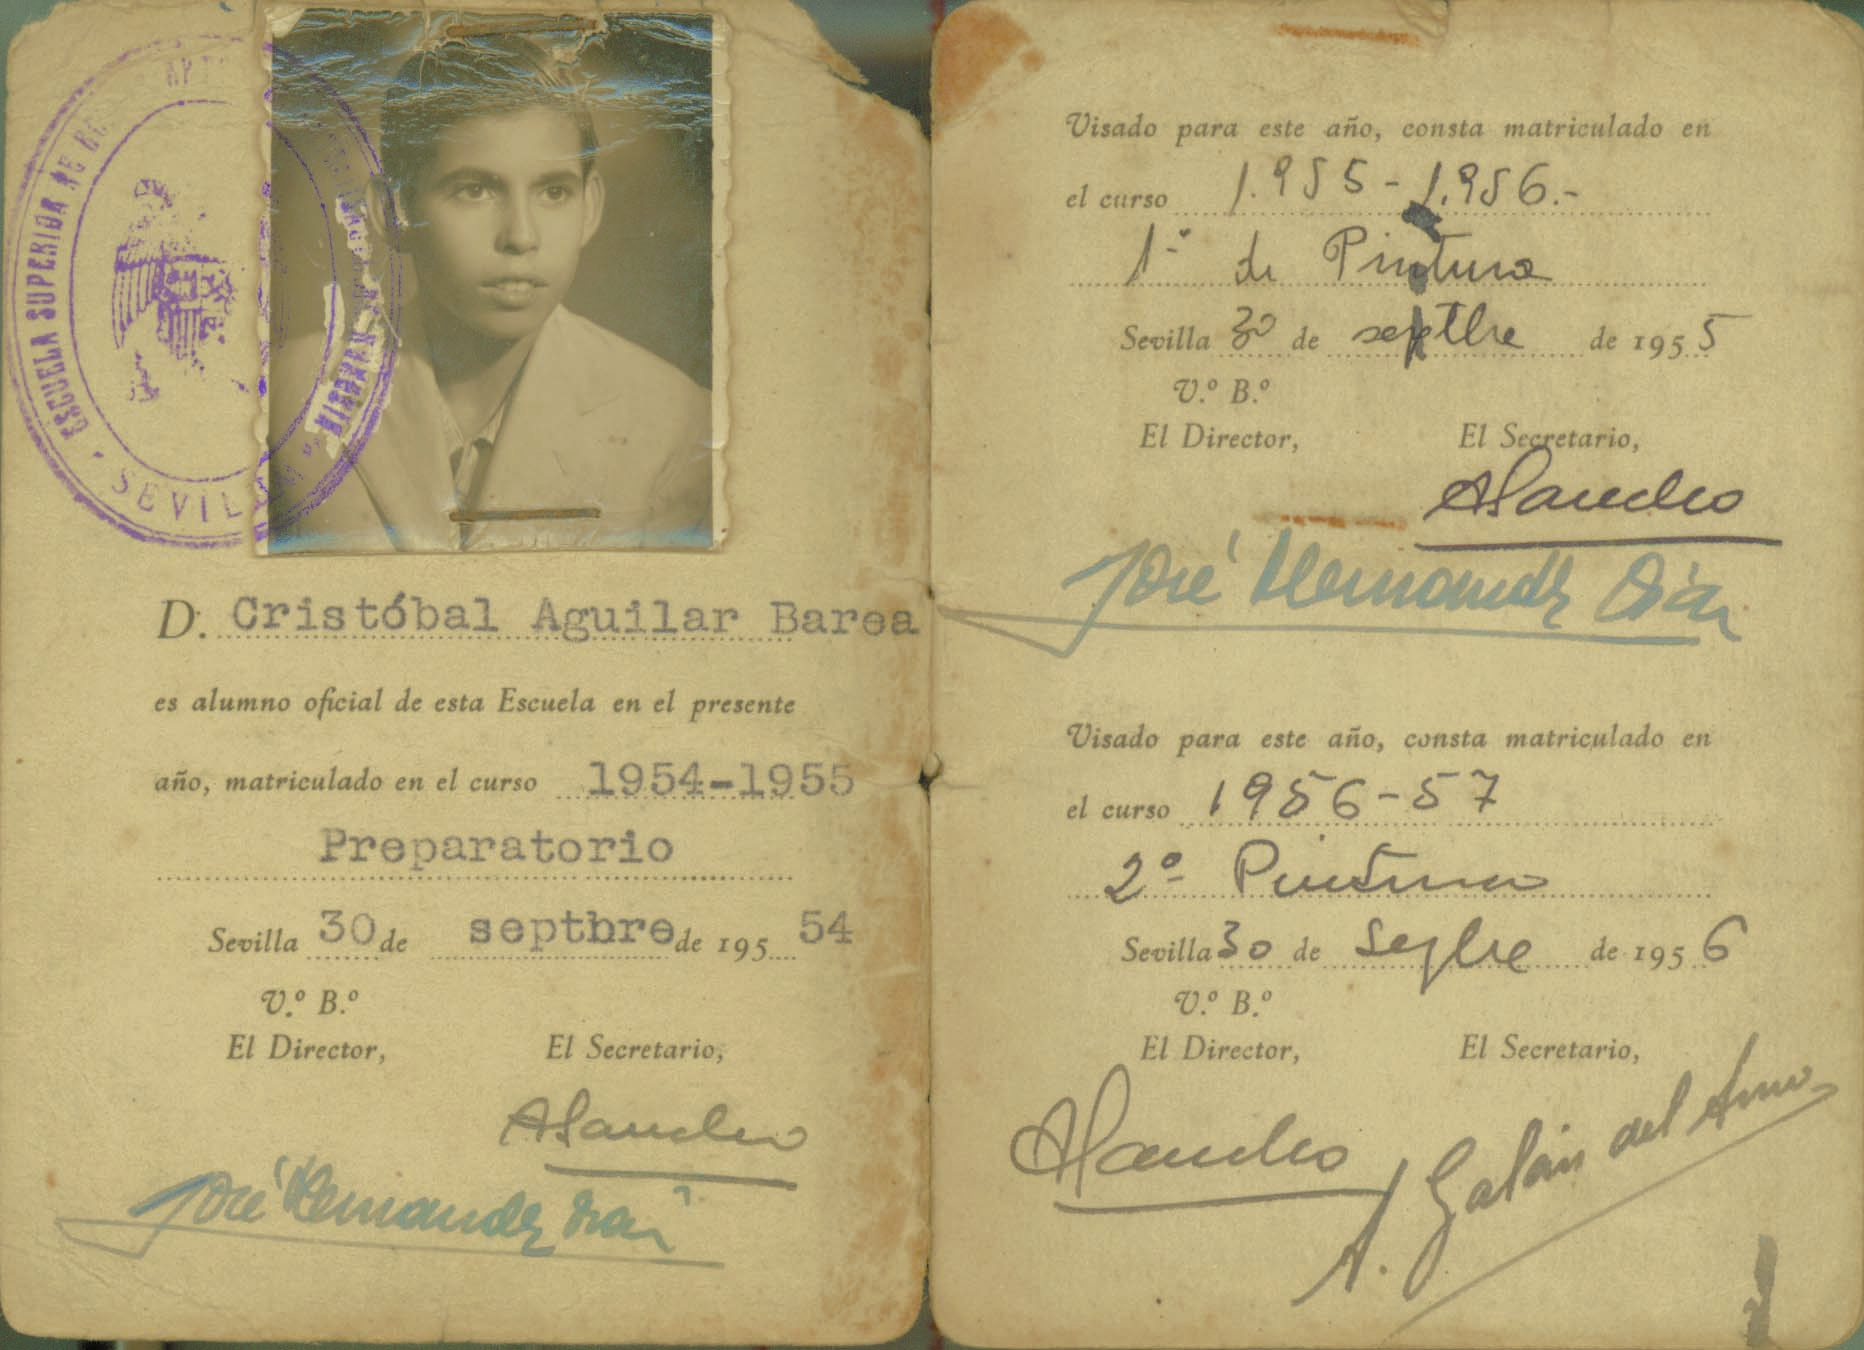 ESCUELA SUPERIOR DE
SEVIL
HUNGRÍA
D. Cristóbal Aguilar Barea
es alumno oficial de esta Escuela en el presente
año, matriculado en el curso 1954-1955
Preparatorio
Sevilla 30 de septbre de 195 54
V.º B.º
El Director, El Secretario,
ASancho
José Hernández Díaz
Visado para este año, consta matriculado en
el curso 1.955-1.956.-
1º de Pintura
Sevilla 30 de septbre de 1955
V.º B.º
El Director, El Secretario,
ASancho
José Hernández Díaz
Visado para este año, consta matriculado en
el curso 1956-57
2º Pintura
Sevilla 30 de Sepbre de 1956
V.º B.º
El Director, El Secretario,
ASancho
A. Galán del Amo